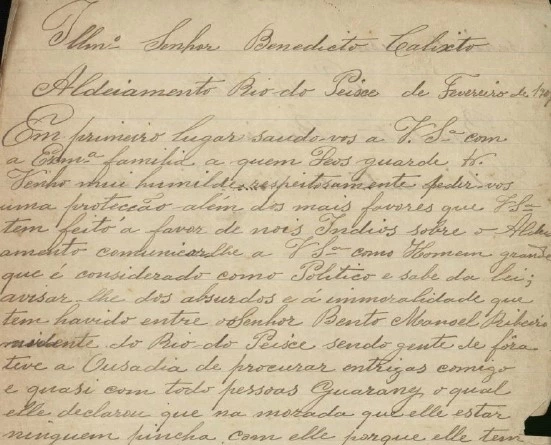 Illmo. Senhor Benedicto Calixto
Aldeiamento Rio do Peisce de Fevereiro de
Em primeiro lugar saudo-vos a V. Sª com
a Exmª familia a quem Deos guarde
Venho mui humilde respeitosamente pedir vos
uma protecção além dos mais favores que V Sª
tem feito á favor de nois Indios sobre o Aldei
amento comunicar lhe a V Sª como Homem grande
que é considerado como Politico e sabe da lei;
avisar-lhe dos absurdos e á immoralidade que
tem havido entre o Senhor Bento Manoel Ribeiro
do Rio do Peisce sendo gente de fóra
teve a Ousadia de procurar entrigas comigo
e quasi com todo pessoas Guarany o qual
elle declarou que na morada que elle estar
ninguem pincha com elle porque elle tem